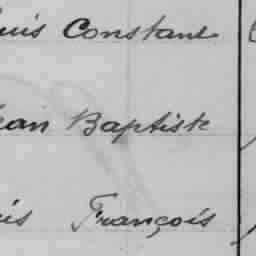 uis Constant
ean Baptiste
is François